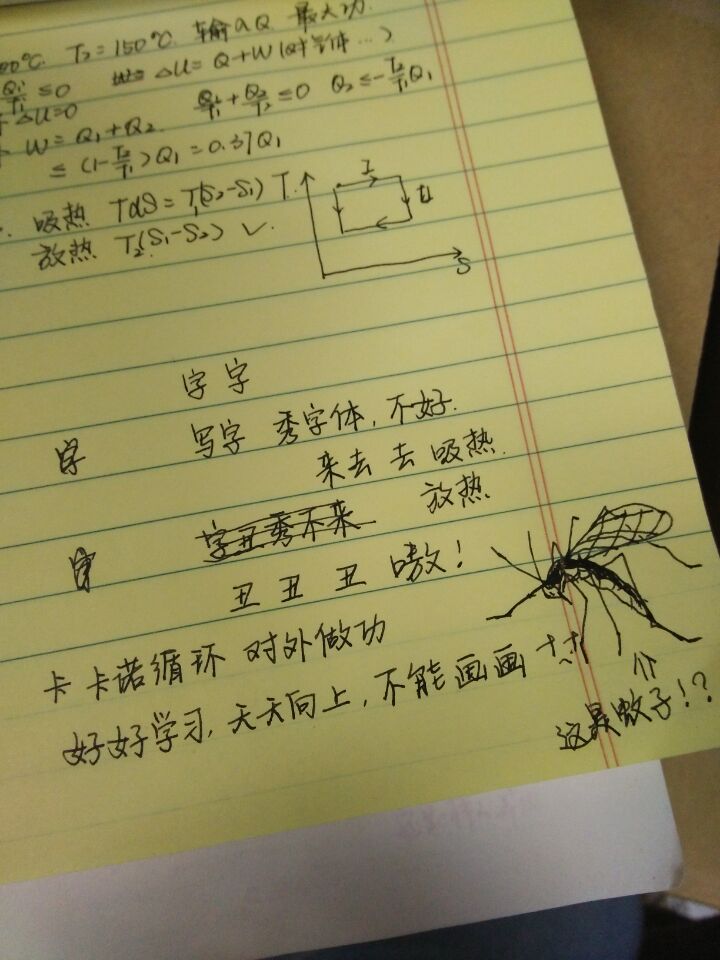 00℃. T₂=150℃. 输入Q. 最大功.
Q₁/T₁ ≤0 ΔU=Q+W
ΔU=0 Q₁/T₁+Q₂/T₂≤0 Q₂≤-T₂/T₁Q₁
W=Q₁+Q₂
≤(1-T₂/T₁)Q₁=0.37Q₁
吸热 TdS=T₁(S₂-S₁) T I
放热 T₂(S₁-S₂) ✓ II
S
字字
字 写字 秀字体,不好.
来去去吸热.
放热
字丑秀不来
字 丑丑丑 嗷!
卡卡诺循环 对外做功
好好学习,天天向上,不能画画
这是蚊子!?